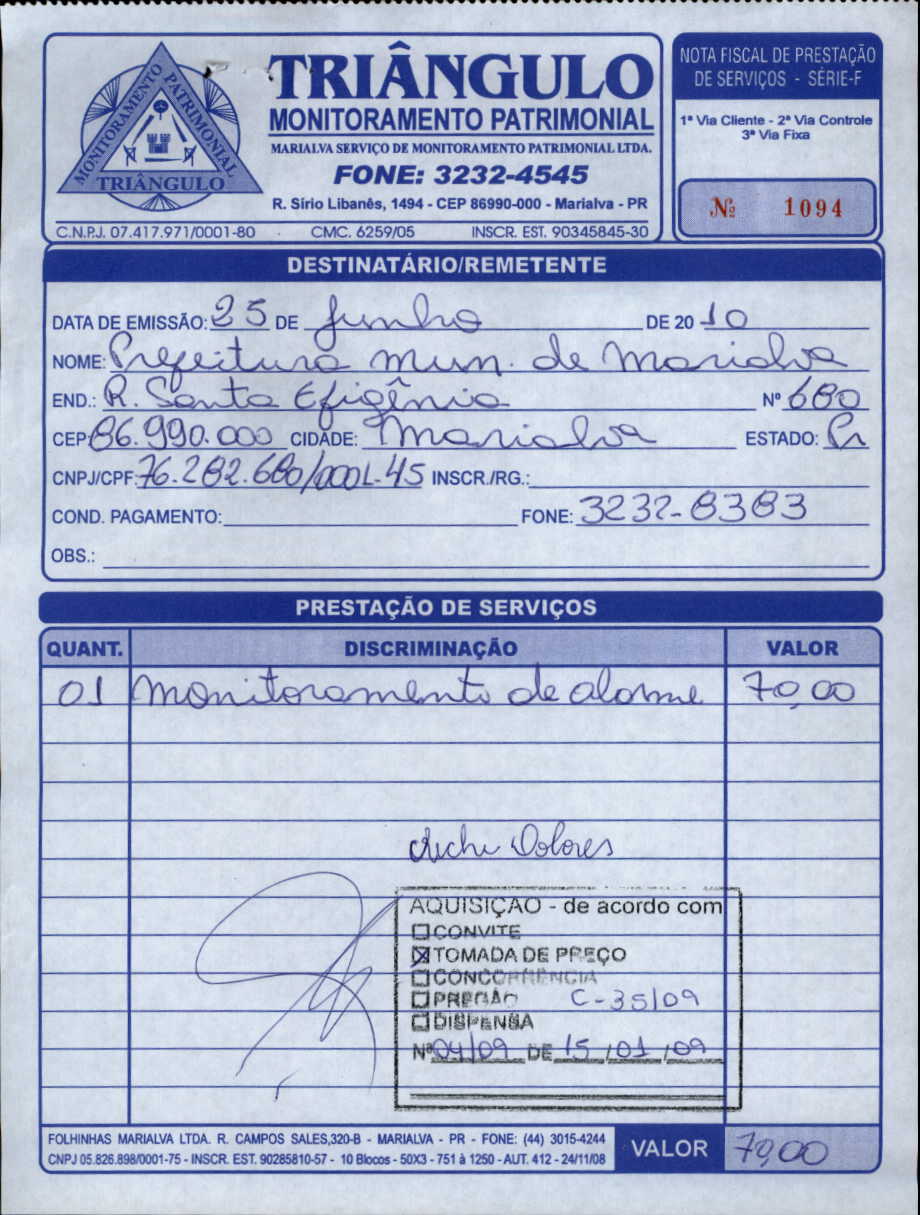 MONITORAMENTO PATRIMONIAL
TRIÂNGULO
TRIÂNGULO
MONITORAMENTO PATRIMONIAL
MARIALVA SERVIÇO DE MONITORAMENTO PATRIMONIAL LTDA.
FONE: 3232-4545
R. Sírio Libanês, 1494 - CEP 86990-000 - Marialva - PR
C.N.P.J. 07.417.971/0001-80 CMC. 6259/05 INSCR. EST. 90345845-30
NOTA FISCAL DE PRESTAÇÃO
DE SERVIÇOS - SÉRIE-F
1ª Via Cliente - 2ª Via Controle
3ª Via Fixa
Nº 1094
DESTINATÁRIO/REMETENTE
DATA DE EMISSÃO: 25 DE Junho DE 20 10
NOME: Prefeitura Mun. de Marialva
END.: R. Santa Efigênia Nº 680
CEP: 86.990.000 CIDADE: Marialva ESTADO: Pr
CNPJ/CPF: 76.282.680/0001-45 INSCR./RG.:
COND. PAGAMENTO: FONE: 3232-8383
OBS.:
PRESTAÇÃO DE SERVIÇOS
QUANT. DISCRIMINAÇÃO VALOR
01 Monitoramento de alarme 70,00
Dolores
AQUISIÇÃO - de acordo com
CONVITE
TOMADA DE PREÇO
CONCORRÊNCIA
PREGÃO C-35/09
DISPENSA
Nº 04/09 DE 15 / 01 / 09
FOLHINHAS MARIALVA LTDA. R. CAMPOS SALES,320-B - MARIALVA - PR - FONE: (44) 3015-4244
CNPJ 05.826.898/0001-75 - INSCR. EST. 90285810-57 - 10 Blocos - 50X3 - 751 à 1250 - AUT. 412 - 24/11/08
VALOR 70,00